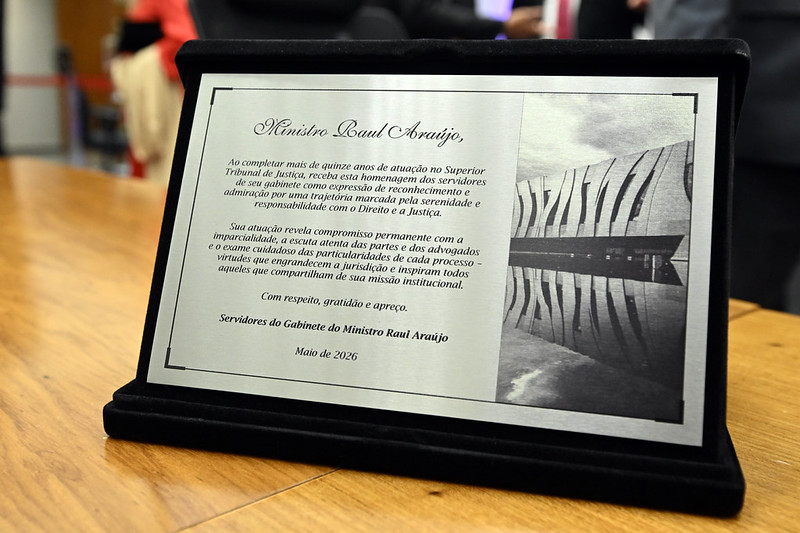 Ministro Raul Araújo,
Ao completar mais de quinze anos de atuação no Superior
Tribunal de Justiça, receba esta homenagem dos servidores
de seu gabinete como expressão de reconhecimento e
admiração por uma trajetória marcada pela serenidade e
responsabilidade com o Direito e a Justiça.
Sua atuação revela compromisso permanente com a
imparcialidade, a escuta atenta das partes e dos advogados
e o exame cuidadoso das particularidades de cada processo –
virtudes que engrandecem a jurisdição e inspiram todos
aqueles que compartilham de sua missão institucional.
Com respeito, gratidão e apreço.
Servidores do Gabinete do Ministro Raul Araújo
Maio de 2026